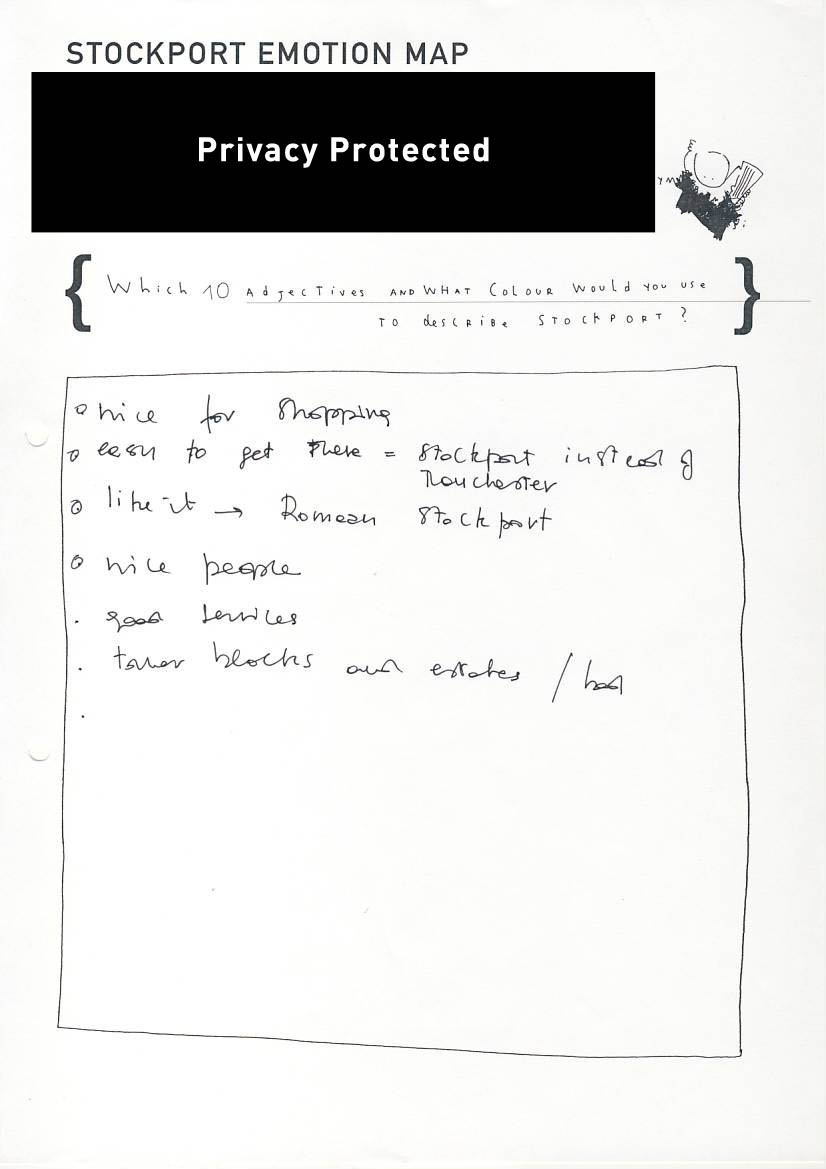 STOCKPORT EMOTION MAP
Privacy Protected
Which 10 Adjectives AND WHAT COLOUR Would You use
TO describe STOCKPORT?
nice for shopping
easy to get there = Stockport instead of
Manchester
like it → Stockport
nice people
good services
tower blocks and estates / bad